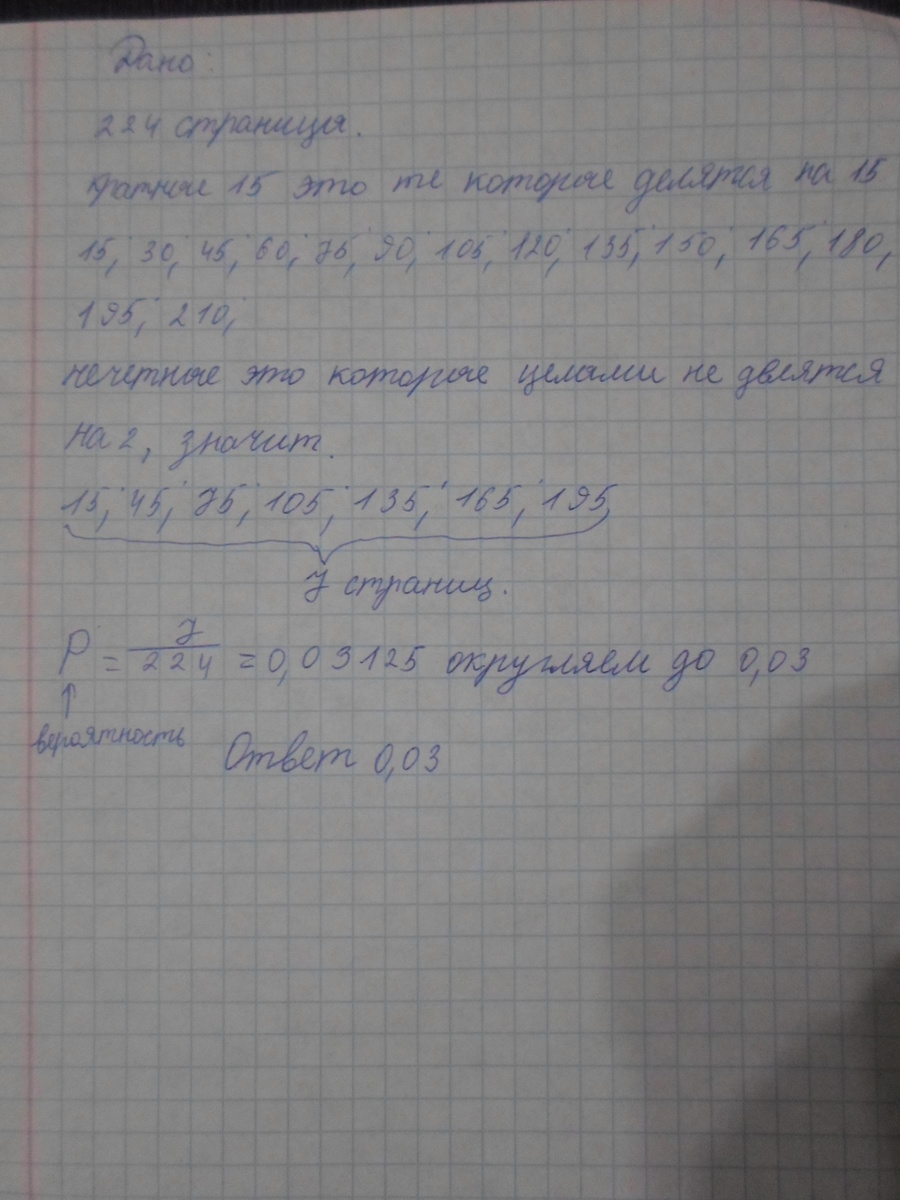 Дано:
224 страницы.
кратное 15 это те которое делятся на 15
15; 30; 45; 60; 75; 90; 105; 120; 135; 150; 165; 180;
195; 210;
нечетное это которое целыми не делятся
на 2, значит.
15; 45; 75; 105; 135; 165; 195
7 страниц.
P = 7/224 = 0,03125 округляем до 0,03
↑
вероятность
Ответ 0,03